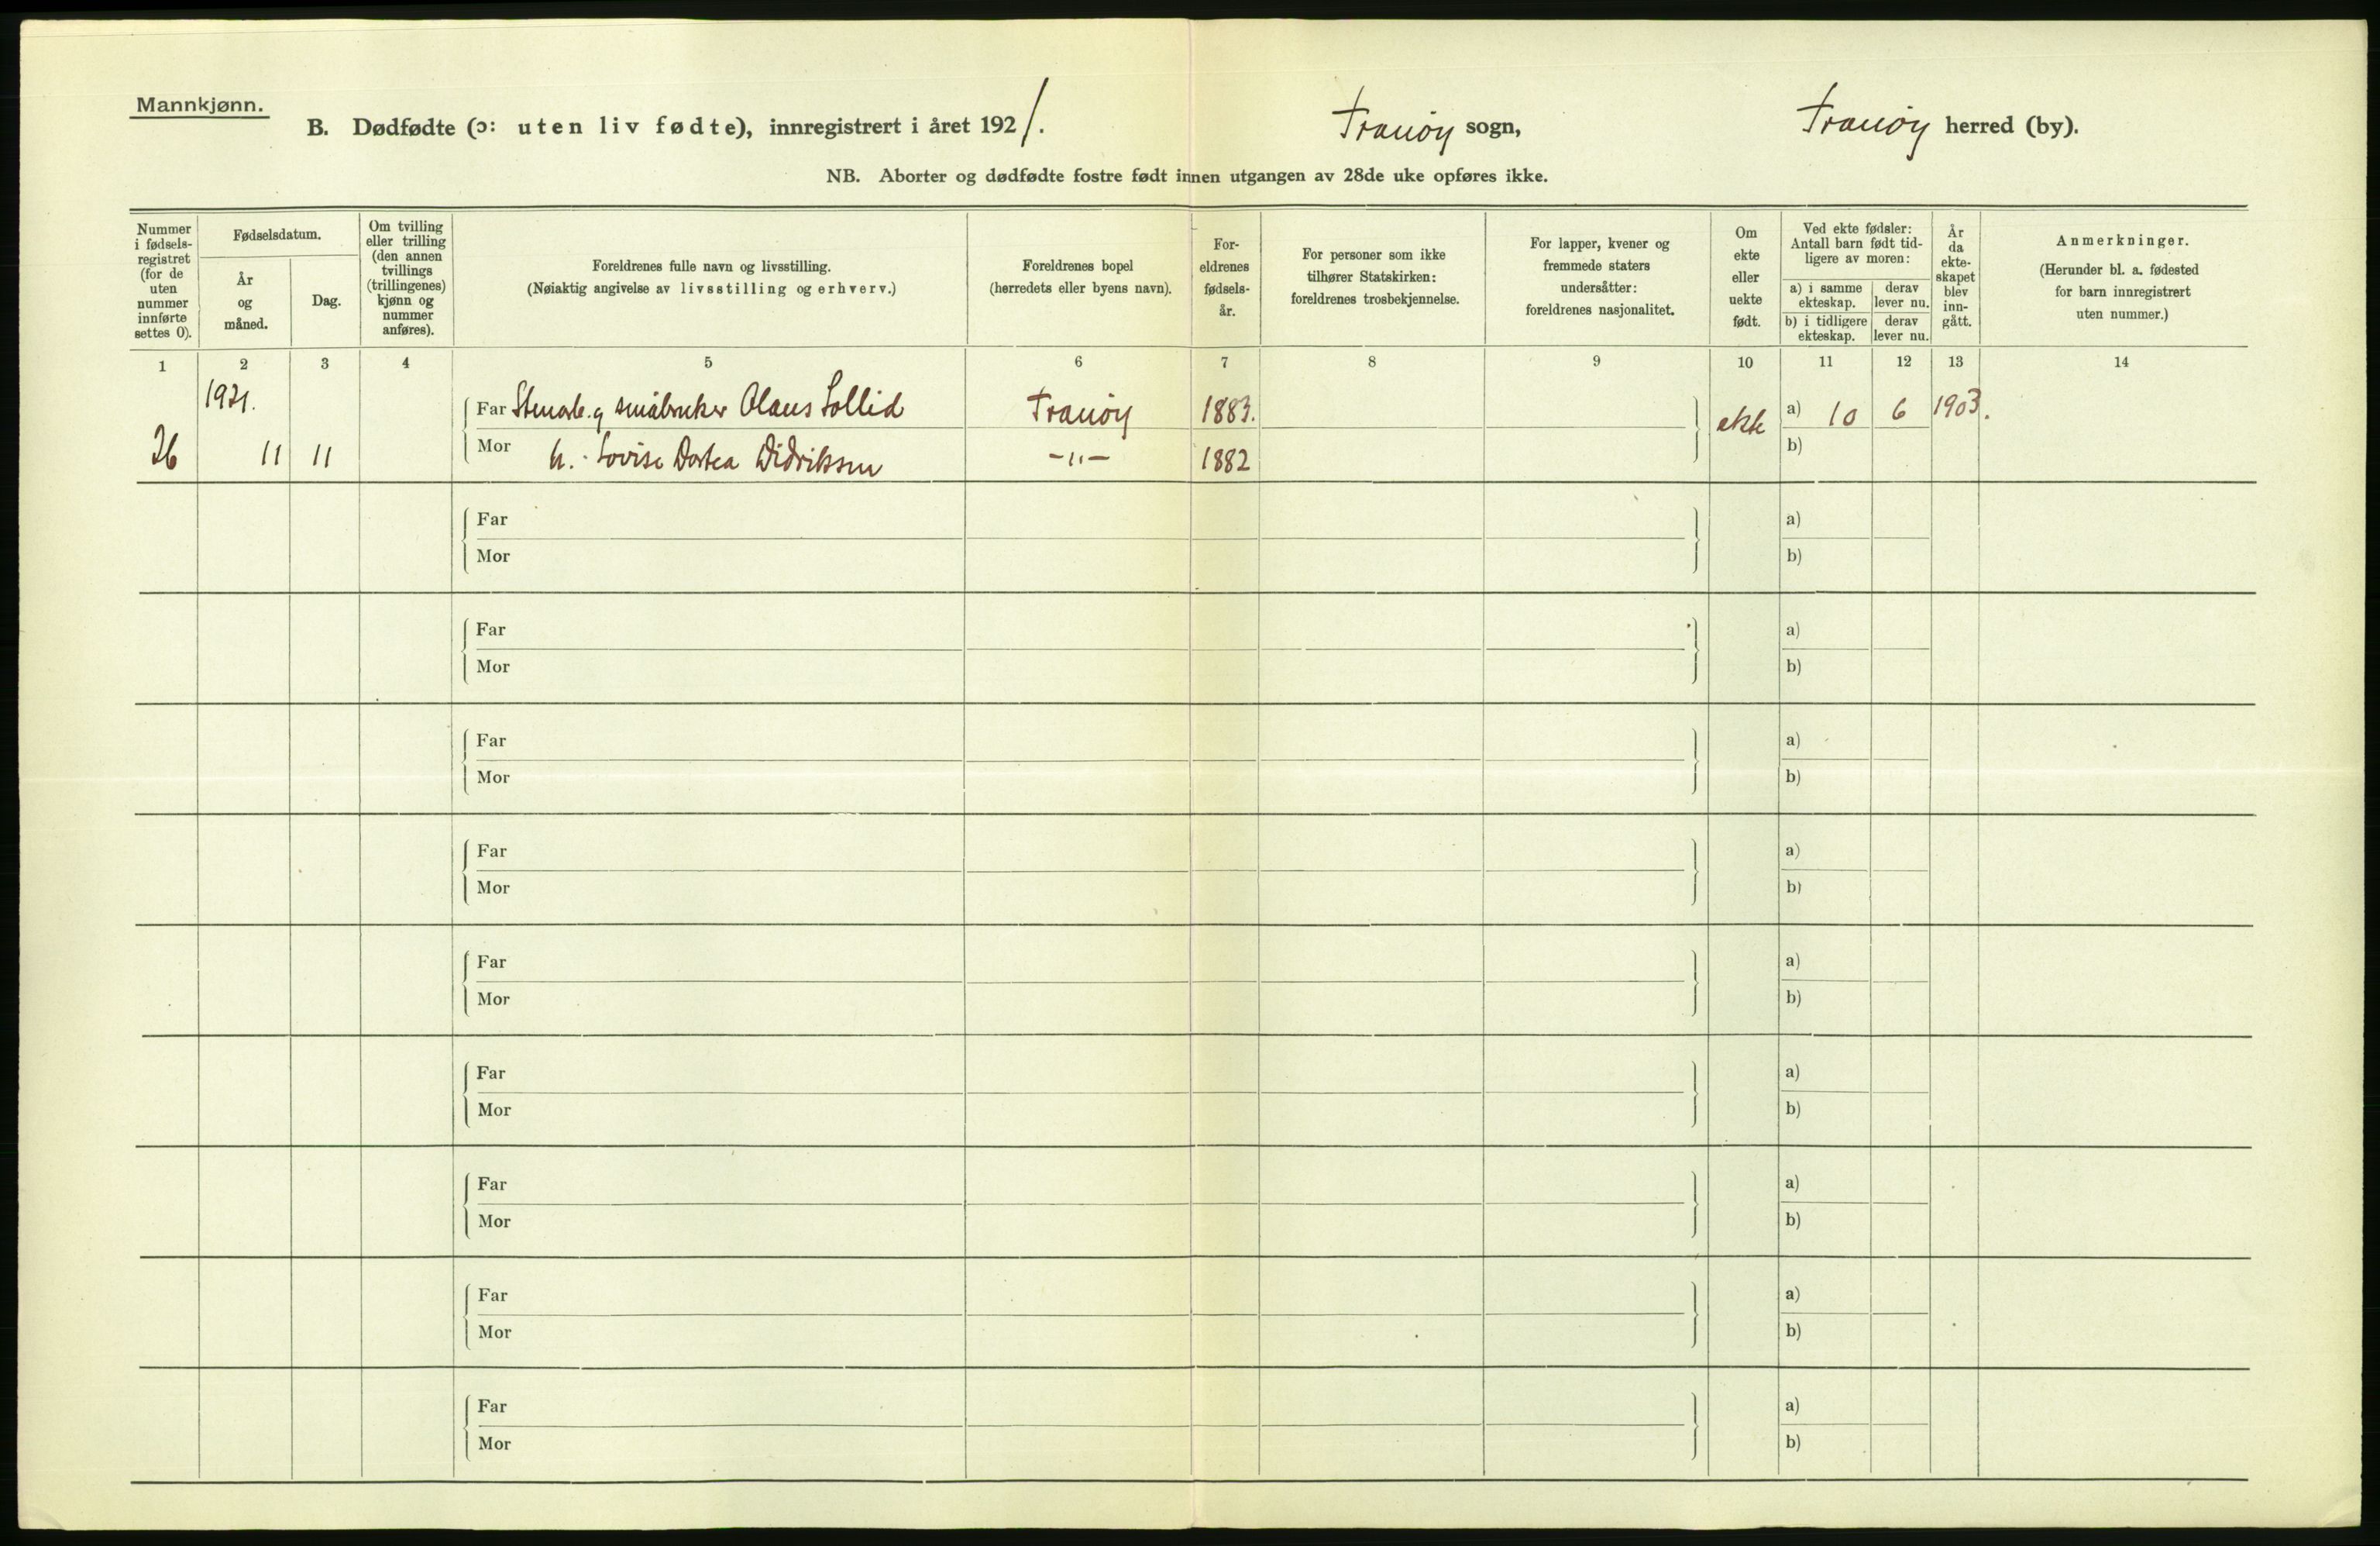 Mannkjønn.
B. Dødfødte (ɔ: uten liv fødte), innregistrert i året 1921. Tranöy sogn, Tranöy herred (by).
NB. Aborter og dødfødte fostre født innen utgangen av 28de uke opføres ikke.
Nummer i fødsels-registret (for de uten nummer innførte settes 0).
Fødselsdatum.
År og måned.
Dag.
Om tvilling eller trilling (den annen tvillings (trillingenes) kjønn og nummer anføres).
Foreldrenes fulle navn og livsstilling.
(Nøiaktig angivelse av livsstilling og erhverv.)
Foreldrenes bopel
(herredets eller byens navn).
For-eldrenes fødsels-år.
For personer som ikke tilhører Statskirken: foreldrenes trosbekjennelse.
For lapper, kvener og fremmede staters undersåtter: foreldrenes nasjonalitet.
Om ekte eller uekte født.
Ved ekte fødsler: Antall barn født tid-ligere av moren:
a) i samme ekteskap. derav lever nu.
b) i tidligere ekteskap. derav lever nu.
År da ekte-skapet blev inn-gått.
Anmerkninger.
(Herunder bl. a. fødested for barn innregistrert uten nummer.)
1 2 3 4 5 6 7 8 9 10 11 12 13 14
1921.
Far Stenarb. og småbruker Olaus Sollid Tranöy 1883. ekte a) 10 6 1903.
26 11 11 Mor h. Lovise Dortea Didriksen -"- 1882 b)
Far a)
Mor b)
Far a)
Mor b)
Far a)
Mor b)
Far a)
Mor b)
Far a)
Mor b)
Far a)
Mor b)
Far a)
Mor b)
Far a)
Mor b)
Far a)
Mor b)